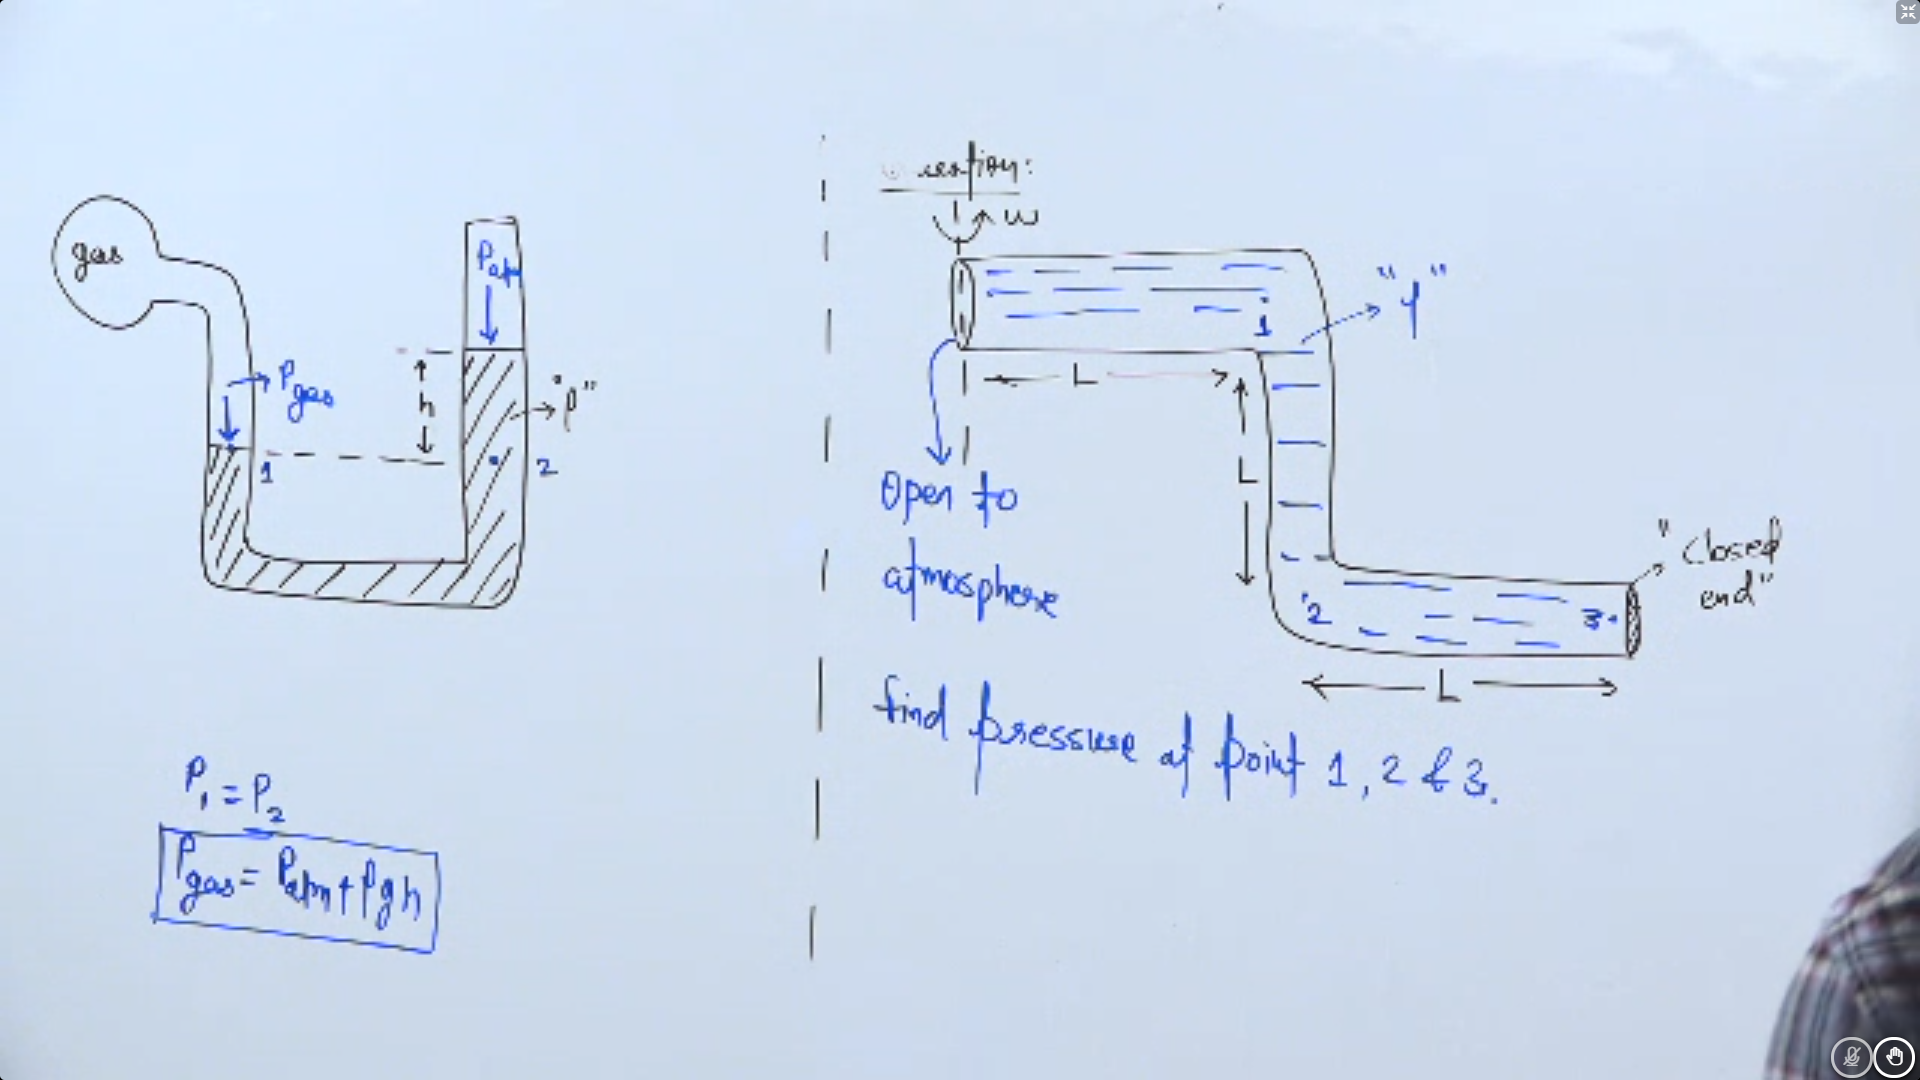 gas
Patm
Pgas
h
"ρ"
1
2
P₁ = P₂
Pgas = Patm + ρgh
ω
1
"ρ"
L
L
Open to
atmosphere
"Closed
end"
2
3
L
find pressure at point 1, 2 & 3.